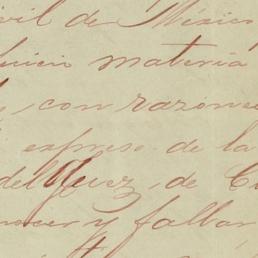 ivil de México
materia
con razones
expreso de la
del Juez de
nocer y fallar